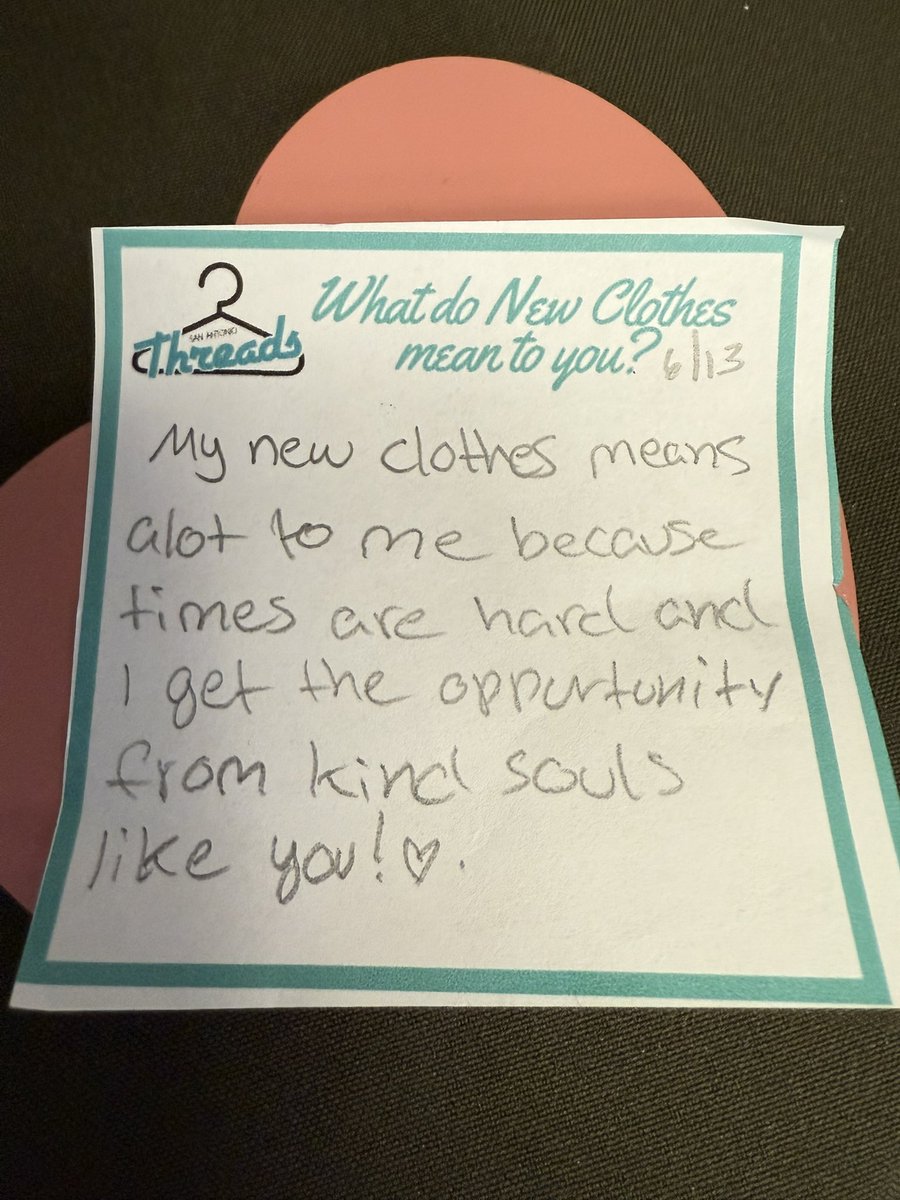 SAN ANTONIO
Threads
What do New Clothes
mean to you? 6/13
My new clothes means
alot to me because
times are hard and
I get the oppurtunity
from kind souls
like you! ♡.